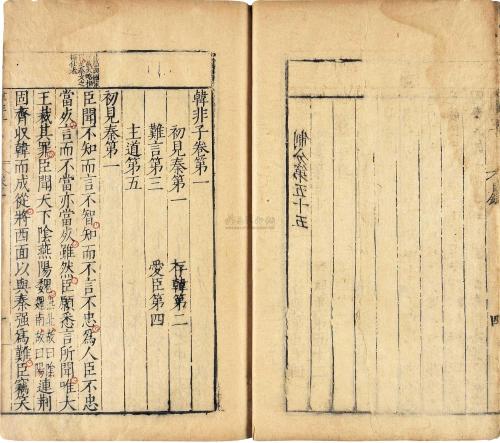 制分第五十五
韓非子卷第一
初見秦第一　存韓第二
難言第三　愛臣第四
主道第五
初見秦第一
臣聞不知而言不智知而不言不忠爲人臣不忠
當死言而不當亦當死雖然臣願悉言所聞唯大
王裁其罪臣聞天下陰燕陽魏燕北故曰陰魏南故曰陽連荆
固齊收韓而成從將西面以與秦强爲難臣竊笑